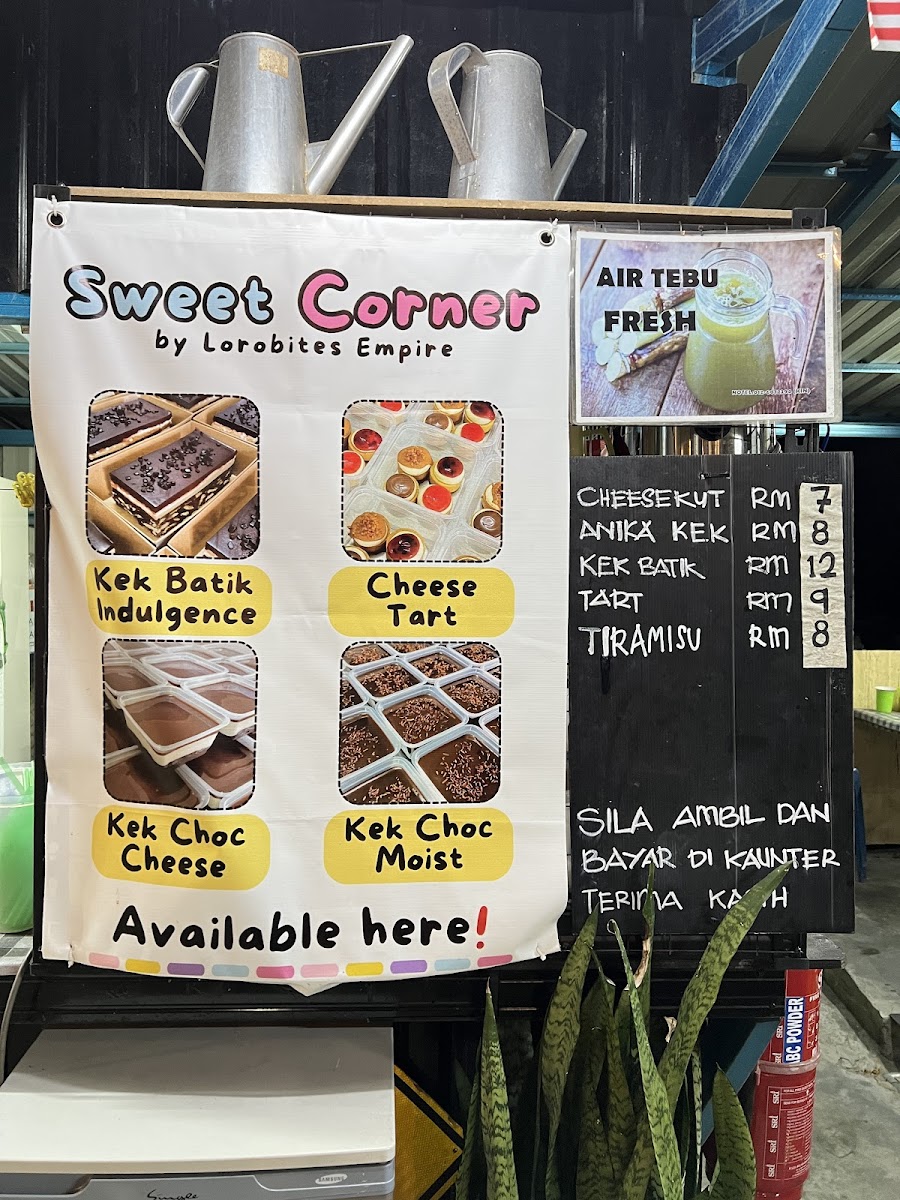 Sweet Corner
by Lorobites Empire
Kek Batik
Indulgence
Cheese
Tart
Kek Choc
Cheese
Kek Choc
Moist
Available here!
AIR TEBU
FRESH
CHEESEKUT RM 7
ANIKA KEK RM 8
KEK BATIK RM 12
TART RM 9
TIRAMISU RM 8
SILA AMBIL DAN
BAYAR DI KAUNTER
TERIMA KASIH
ABC POWDER
SRI
SRI
SRI
SRI
SAMSUNG